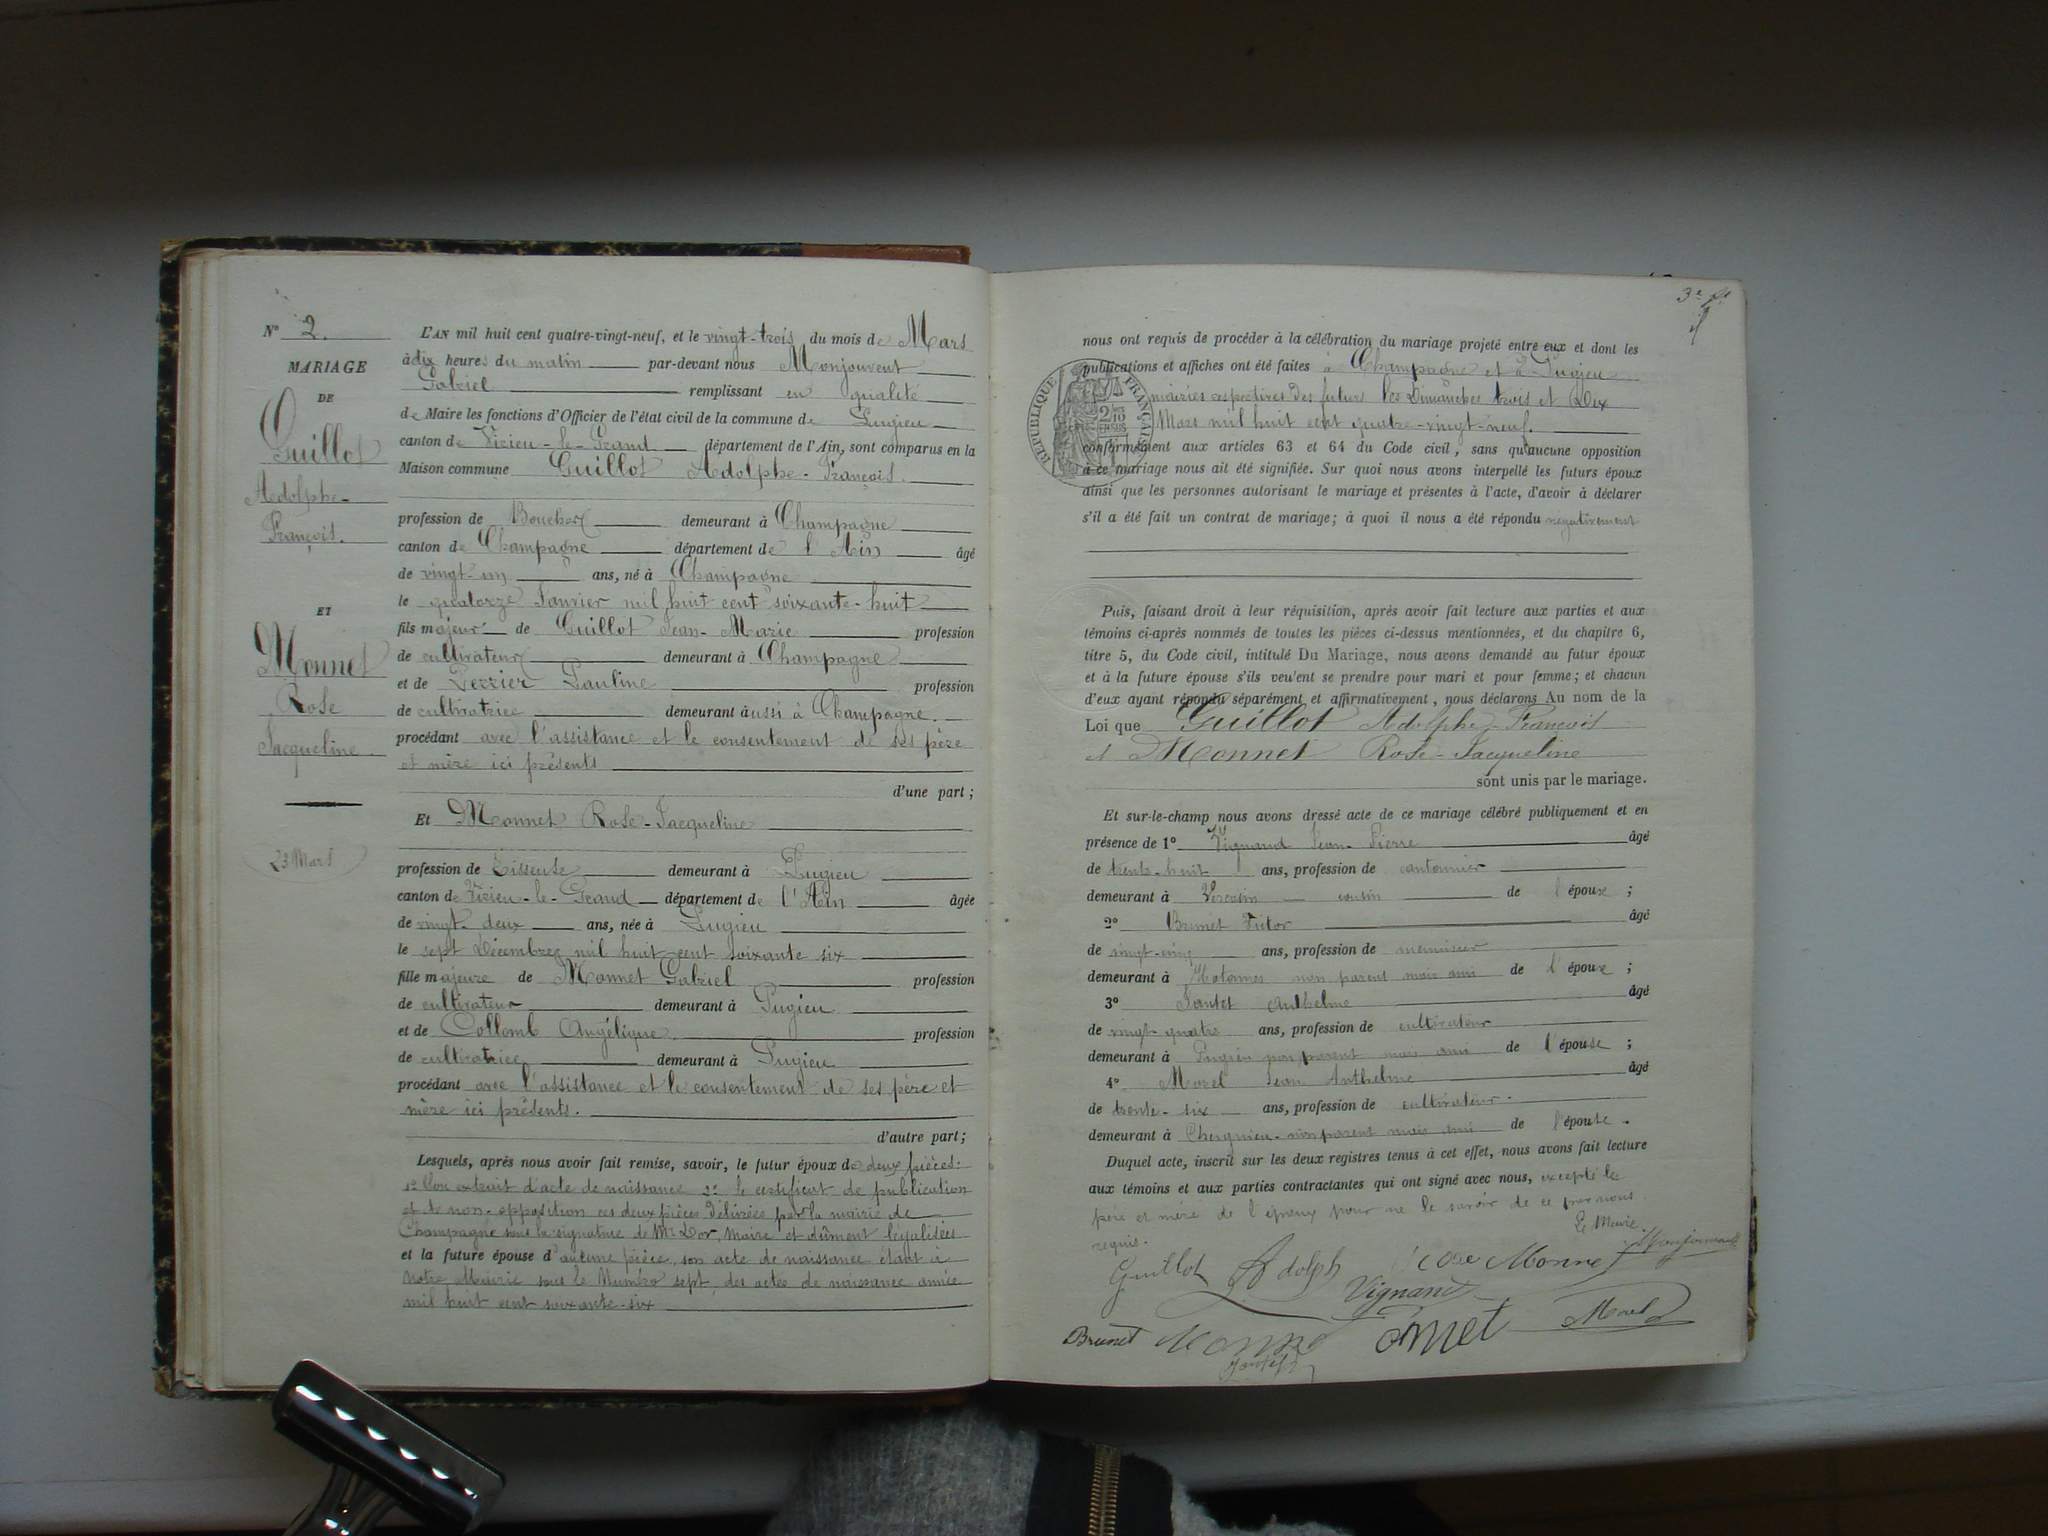 N° 2.
MARIAGE
DE
Guillot
Adolphe-
François.
ET
Monnet
Rose
Jacqueline.
23 Mars
L'AN mil huit cent quatre-vingt-neuf, et le vingt-trois du mois de Mars
à dix heures du matin par-devant nous Monjouvent
Gabriel remplissant en qualité
de Maire les fonctions d'Officier de l'état civil de la commune de Pugieu
canton de Virieu-le-Grand département de l'Ain, sont comparus en la
Maison commune Guillot Adolphe-François.
profession de Boucher demeurant à Champagne
canton de Champagne département de l'Ain âgé
de vingt-un ans, né à Champagne
le quatorze Janvier mil huit cent soixante-huit
fils majeur de Guillot Jean-Marie profession
de cultivateur demeurant à Champagne
et de Perrier Pauline profession
de cultivatrice demeurant aussi à Champagne.
procédant avec l'assistance et le consentement de ses père
et mère ici présents
d'une part ;
Et Monnet Rose-Jacqueline
profession de Tisseuse demeurant à Pugieu
canton de Virieu-le-Grand département de l'Ain âgée
de vingt-deux ans, née à Pugieu
le sept Décembre mil huit cent soixante six
fille majeure de Monnet Gabriel profession
de cultivateur demeurant à Pugieu
et de Collomb Angélique profession
de cultivatrice demeurant à Pugieu
procédant avec l'assistance et le consentement de ses père et
mère ici présents.
d'autre part ;
Lesquels, après nous avoir fait remise, savoir, le futur époux de deux pièces:
1° Son extrait d'acte de naissance 2° le certificat de publication
et de non-opposition ces deux pièces délivrées par la mairie de
Champagne sous la signature de Mr Dor, Maire et dûment légalisées
et la future épouse d'aucune pièce, son acte de naissance étant à
notre Mairie sous le Numéro sept, des actes de naissance année
mil huit cent soixante-six
3e
nous ont requis de procéder à la célébration du mariage projeté entre eux et dont les
publications et affiches ont été faites à Champagne et à Pugieu
mairies respectives des futurs les Dimanches trois et Dix
Mars mil huit cent quatre-vingt-neuf.
conformément aux articles 63 et 64 du Code civil, sans qu'aucune opposition
à ce mariage nous ait été signifiée. Sur quoi nous avons interpellé les futurs époux
ainsi que les personnes autorisant le mariage et présentes à l'acte, d'avoir à déclarer
s'il a été fait un contrat de mariage; à quoi il nous a été répondu négativement
RÉPUBLIQUE FRANÇAISE
Puis, faisant droit à leur réquisition, après avoir fait lecture aux parties et aux
témoins ci-après nommés de toutes les pièces ci-dessus mentionnées, et du chapitre 6,
titre 5, du Code civil, intitulé Du Mariage, nous avons demandé au futur époux
et à la future épouse s'ils veulent se prendre pour mari et pour femme ; et chacun
d'eux ayant répondu séparément et affirmativement, nous déclarons Au nom de la
Loi que Guillot Adolphe-François
et Monnet Rose-Jacqueline
sont unis par le mariage.
Et sur-le-champ nous avons dressé acte de ce mariage célébré publiquement et en
présence de 1° Vignand Jean-Pierre âgé
de trente-huit ans, profession de cantonnier
demeurant à cousin de l'épouse ;
2° Brunet Victor âgé
de vingt-cinq ans, profession de menuisier
demeurant à Hotonnes non parent mais ami de l'époux ;
3° Jantet Anthelme âgé
de vingt-quatre ans, profession de cultivateur
demeurant à Pugieu non parent mais ami de l'épouse ;
4° Morel Jean Anthelme âgé
de trente-six ans, profession de cultivateur.
demeurant à Cheignieu non parent mais ami de l'épouse.
Duquel acte, inscrit sur les deux registres tenus à cet effet, nous avons fait lecture
aux témoins et aux parties contractantes qui ont signé avec nous, excepté les
père et mère de l'époux pour ne le savoir de ce par nous
requis.
Le Maire
Monjouvent
Guillot Adolph Rose Monnet
Vignand
Brunet Monnet Morel
Jantet